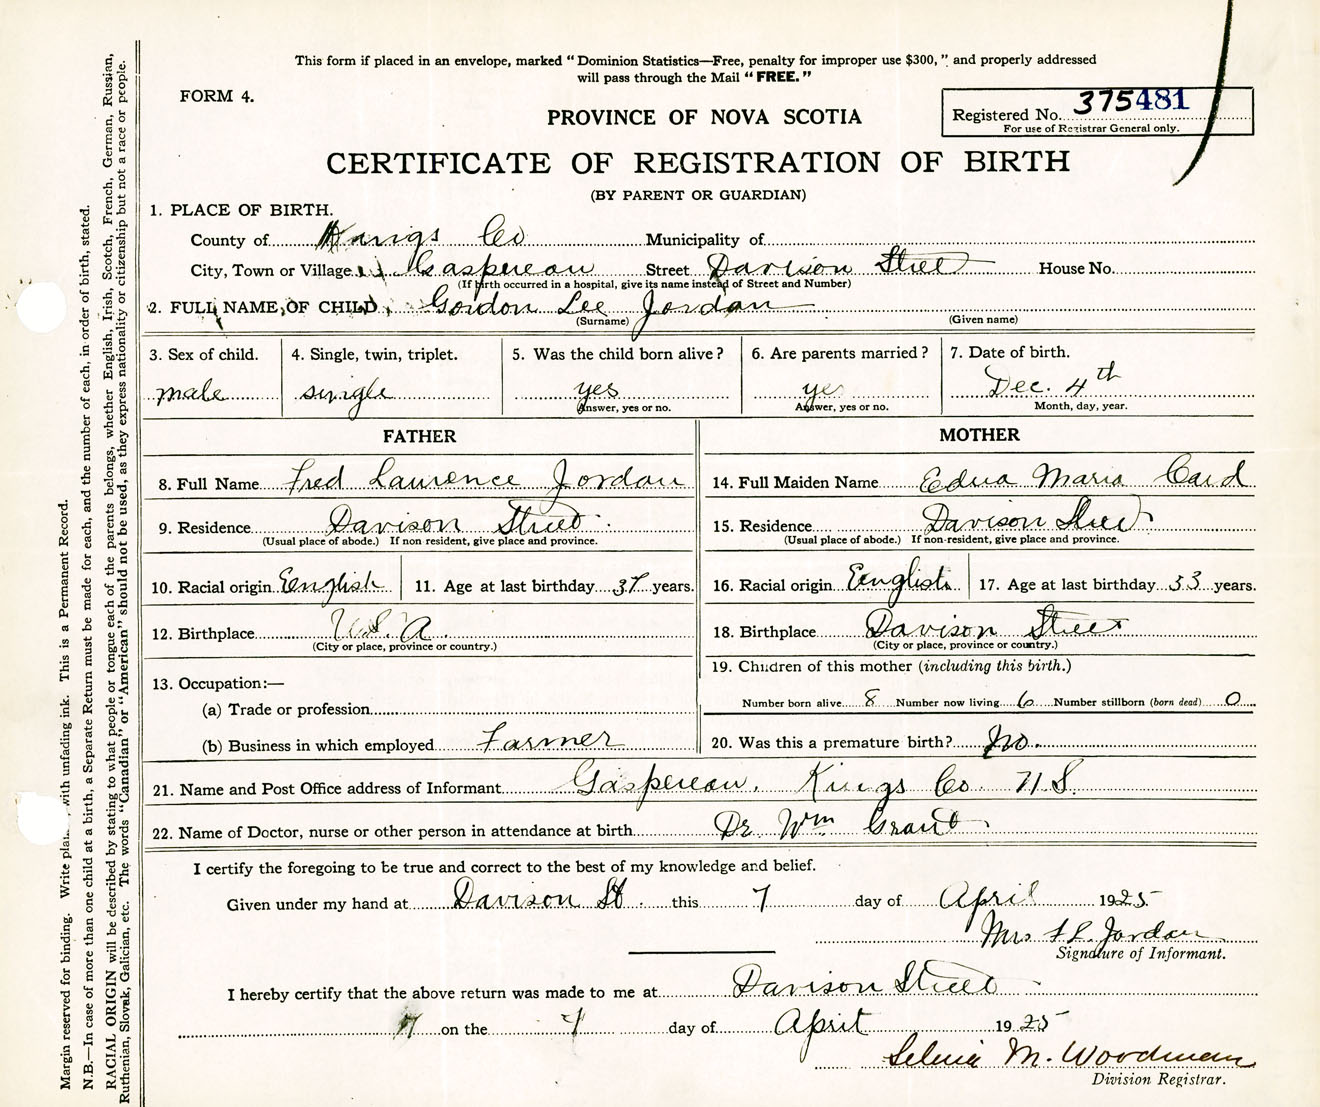 This form if placed in an envelope, marked “Dominion Statistics—Free, penalty for improper use $300,” and properly addressed
will pass through the Mail “FREE.”
FORM 4.
Registered No. 375481
For use of Registrar General only.
PROVINCE OF NOVA SCOTIA
CERTIFICATE OF REGISTRATION OF BIRTH
(BY PARENT OR GUARDIAN)
1. PLACE OF BIRTH.
County of Kings Co Municipality of
City, Town or Village Gaspereau Street Davison Street House No.
(If birth occurred in a hospital, give its name instead of Street and Number)
2. FULL NAME OF CHILD Gordon Lee Jordan
(Surname) (Given name)
3. Sex of child. 4. Single, twin, triplet. 5. Was the child born alive? 6. Are parents married? 7. Date of birth.
male single yes yes Dec. 4th
Answer, yes or no. Answer, yes or no. Month, day, year.
FATHER MOTHER
8. Full Name Fred Laurence Jordan 14. Full Maiden Name Edna Maria Card
9. Residence Davison Street 15. Residence Davison Street
(Usual place of abode.) If non resident, give place and province. (Usual place of abode.) If non-resident, give place and province.
10. Racial origin English 11. Age at last birthday 37 years. 16. Racial origin English 17. Age at last birthday 33 years.
12. Birthplace U.S.A. 18. Birthplace Davison Street
(City or place, province or country.) (City or place, province or country.)
13. Occupation:— 19. Children of this mother (including this birth.)
(a) Trade or profession Number born alive 8 Number now living 6 Number stillborn (born dead) 0
(b) Business in which employed Farmer 20. Was this a premature birth? No.
21. Name and Post Office address of Informant Gaspereau, Kings Co. N.S.
22. Name of Doctor, nurse or other person in attendance at birth Dr Wm Grant
I certify the foregoing to be true and correct to the best of my knowledge and belief.
Given under my hand at Davison St. this 7 day of April 1925
Mrs F L Jordan
Signature of Informant.
I hereby certify that the above return was made to me at Davison Street
on the 7 day of April 1925
Selina M. Woodman
Division Registrar.
Margin reserved for binding. Write with unfading ink. This is a Permanent Record.
N.B.—In case of more than one child at a birth, a Separate Return must be made for each, and the number of each, in order of birth, stated.
RACIAL ORIGIN will be described by stating to what people or tongue each of the parents belongs, whether English, Irish, Scotch, French, German, Russian,
Ruthenian, Slovak, Galician, etc. The words “Canadian” or “American” should not be used, as they express nationality or citizenship but not a race or people.